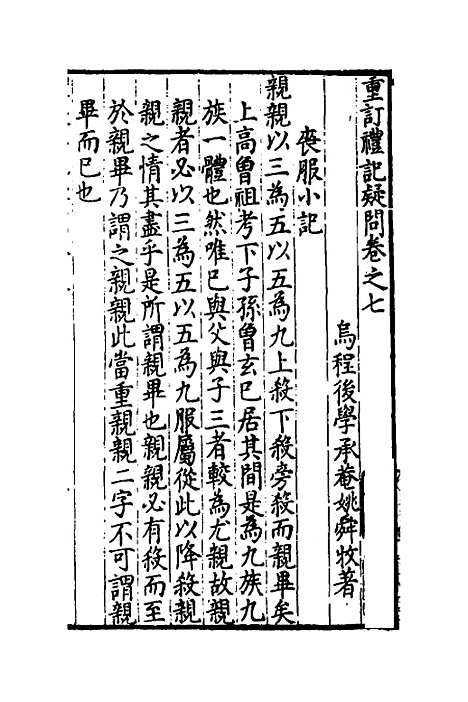 重訂禮記疑問卷之七
烏程後學承菴姚舜牧著
喪服小記
親親以三為五以五為九上殺下殺旁殺而親畢矣
上高曾祖考下子孫曾玄巳居其間是為九族九
族一體也然唯巳與父與子三者較為尤親故親
親者必以三為五以五為九服屬從此以降殺親
親之情其盡乎是所謂親畢也親親必有殺而至
於親畢乃謂之親親此當重親親二字不可謂親
畢而巳也